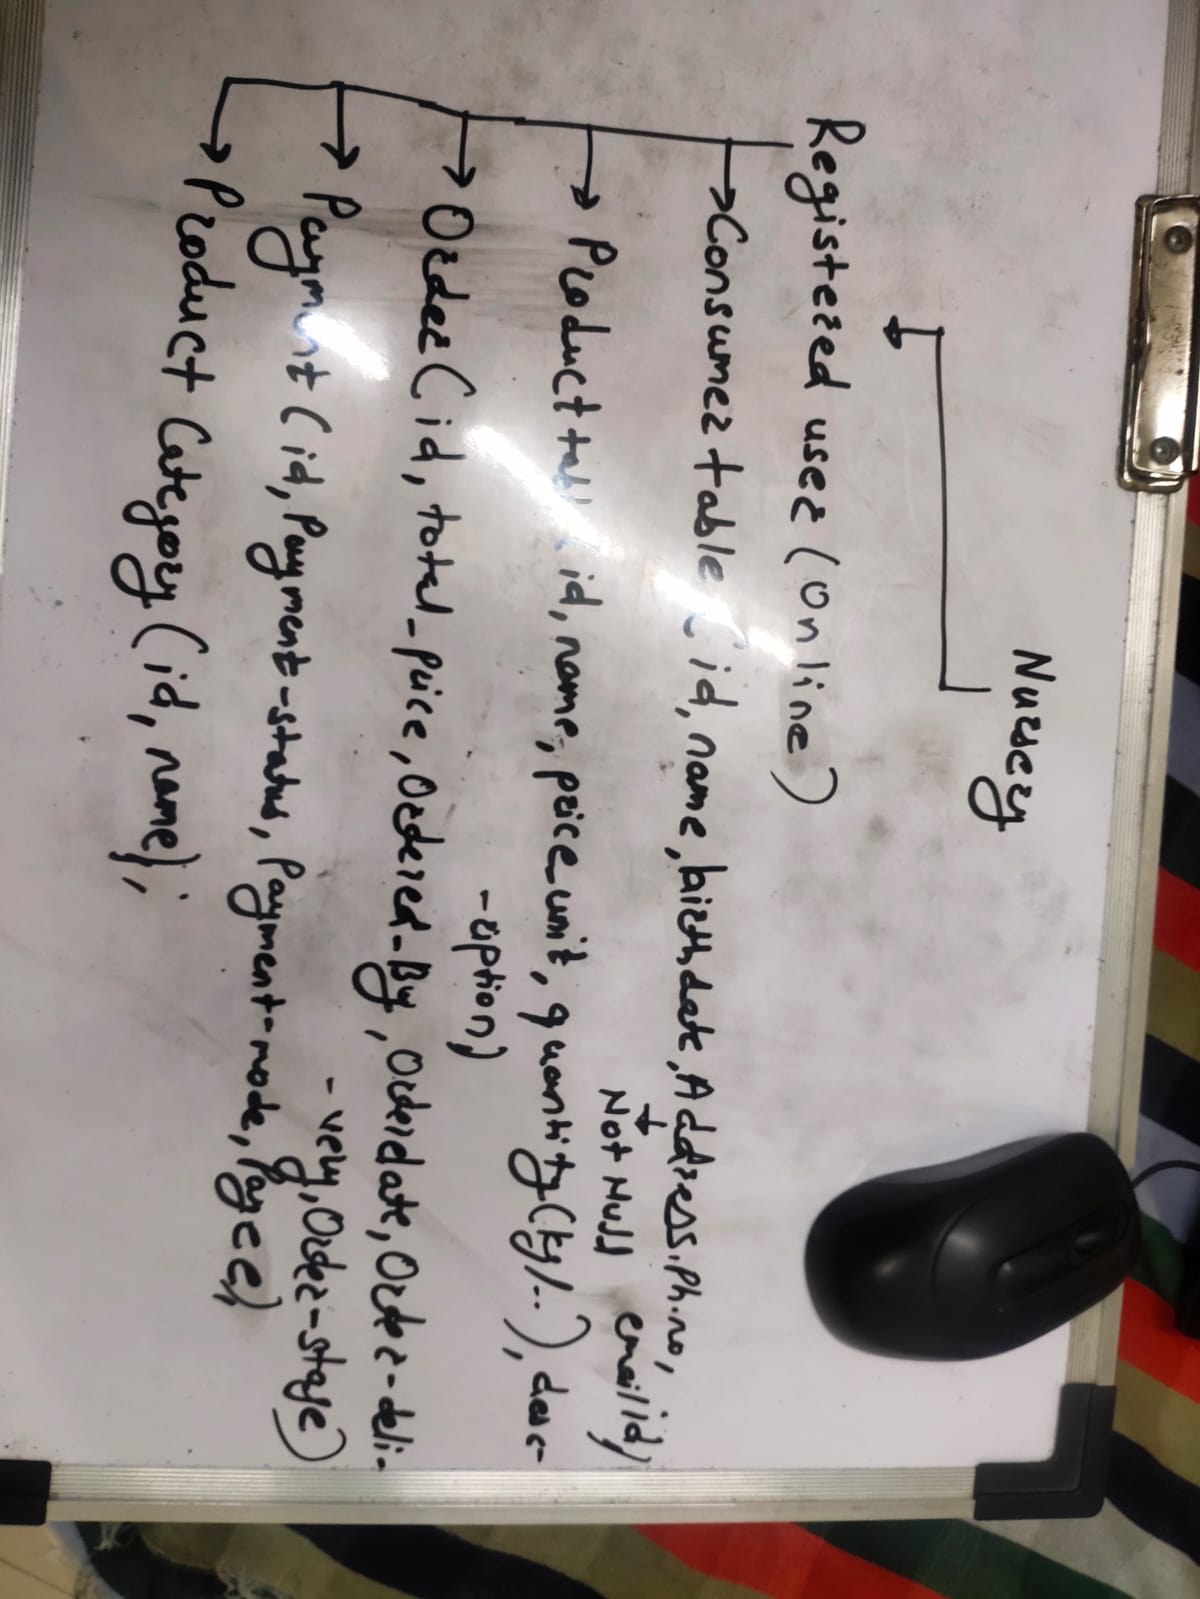 Nursery
Registered user (Online)
Consumer table (id, name, birthdate, Address, Ph.no,
email id)
Not Null
Product table (id, name, price_unit, quantity (kg/..), desc-
-ription)
Order (id, total_price, Ordered_By, Orderdate, Order-deli-
-very, Order-stage)
Payment (id, Payment-status, Payment-mode, Payee),
Product Category (id, name);